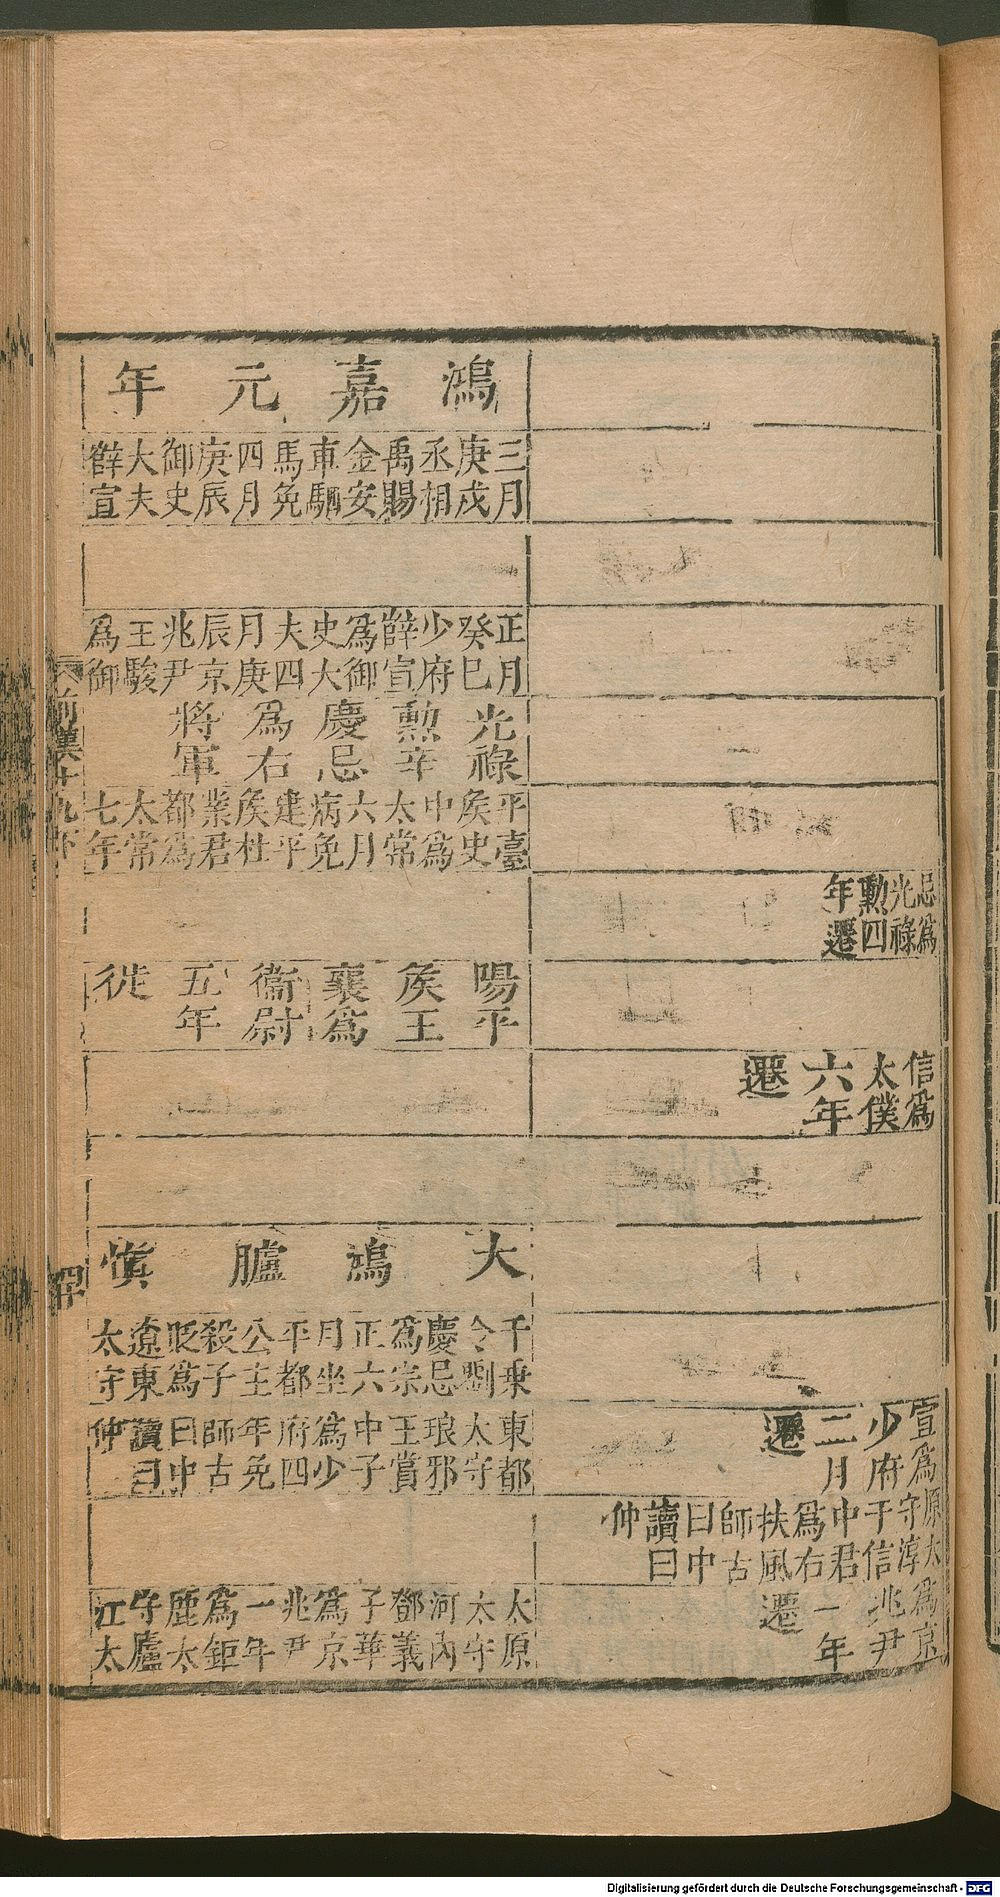 忌爲光祿勲四年遷
信爲太僕六年遷
宣爲少府二月遷
原太守淳于信中君爲右扶風師古曰中讀曰仲
爲京兆尹一年遷
鴻嘉元年
三月庚戌丞相禹賜金安車駟馬免四月庚辰御史大夫薛宣
正月癸巳少府薛宣爲御史大夫四月庚辰京兆尹王駿爲御
光祿勲辛慶忌爲右將軍
平臺矦史中爲太常六月病免建平矦杜業君都爲太常七年
陽平矦王襄爲衞尉五年徙
大鴻臚慎
千乗令劉慶忌爲宗正六月坐平都公主殺子貶爲遼東太守
東都太守琅邪王賞中子爲少府四年免師古曰中讀曰仲
太原太守河內鄧義子華爲京兆尹一年爲鉅鹿太守廬江太
前漢十九下
Digitalisierung gefördert durch die Deutsche Forschungsgemeinschaft - DFG